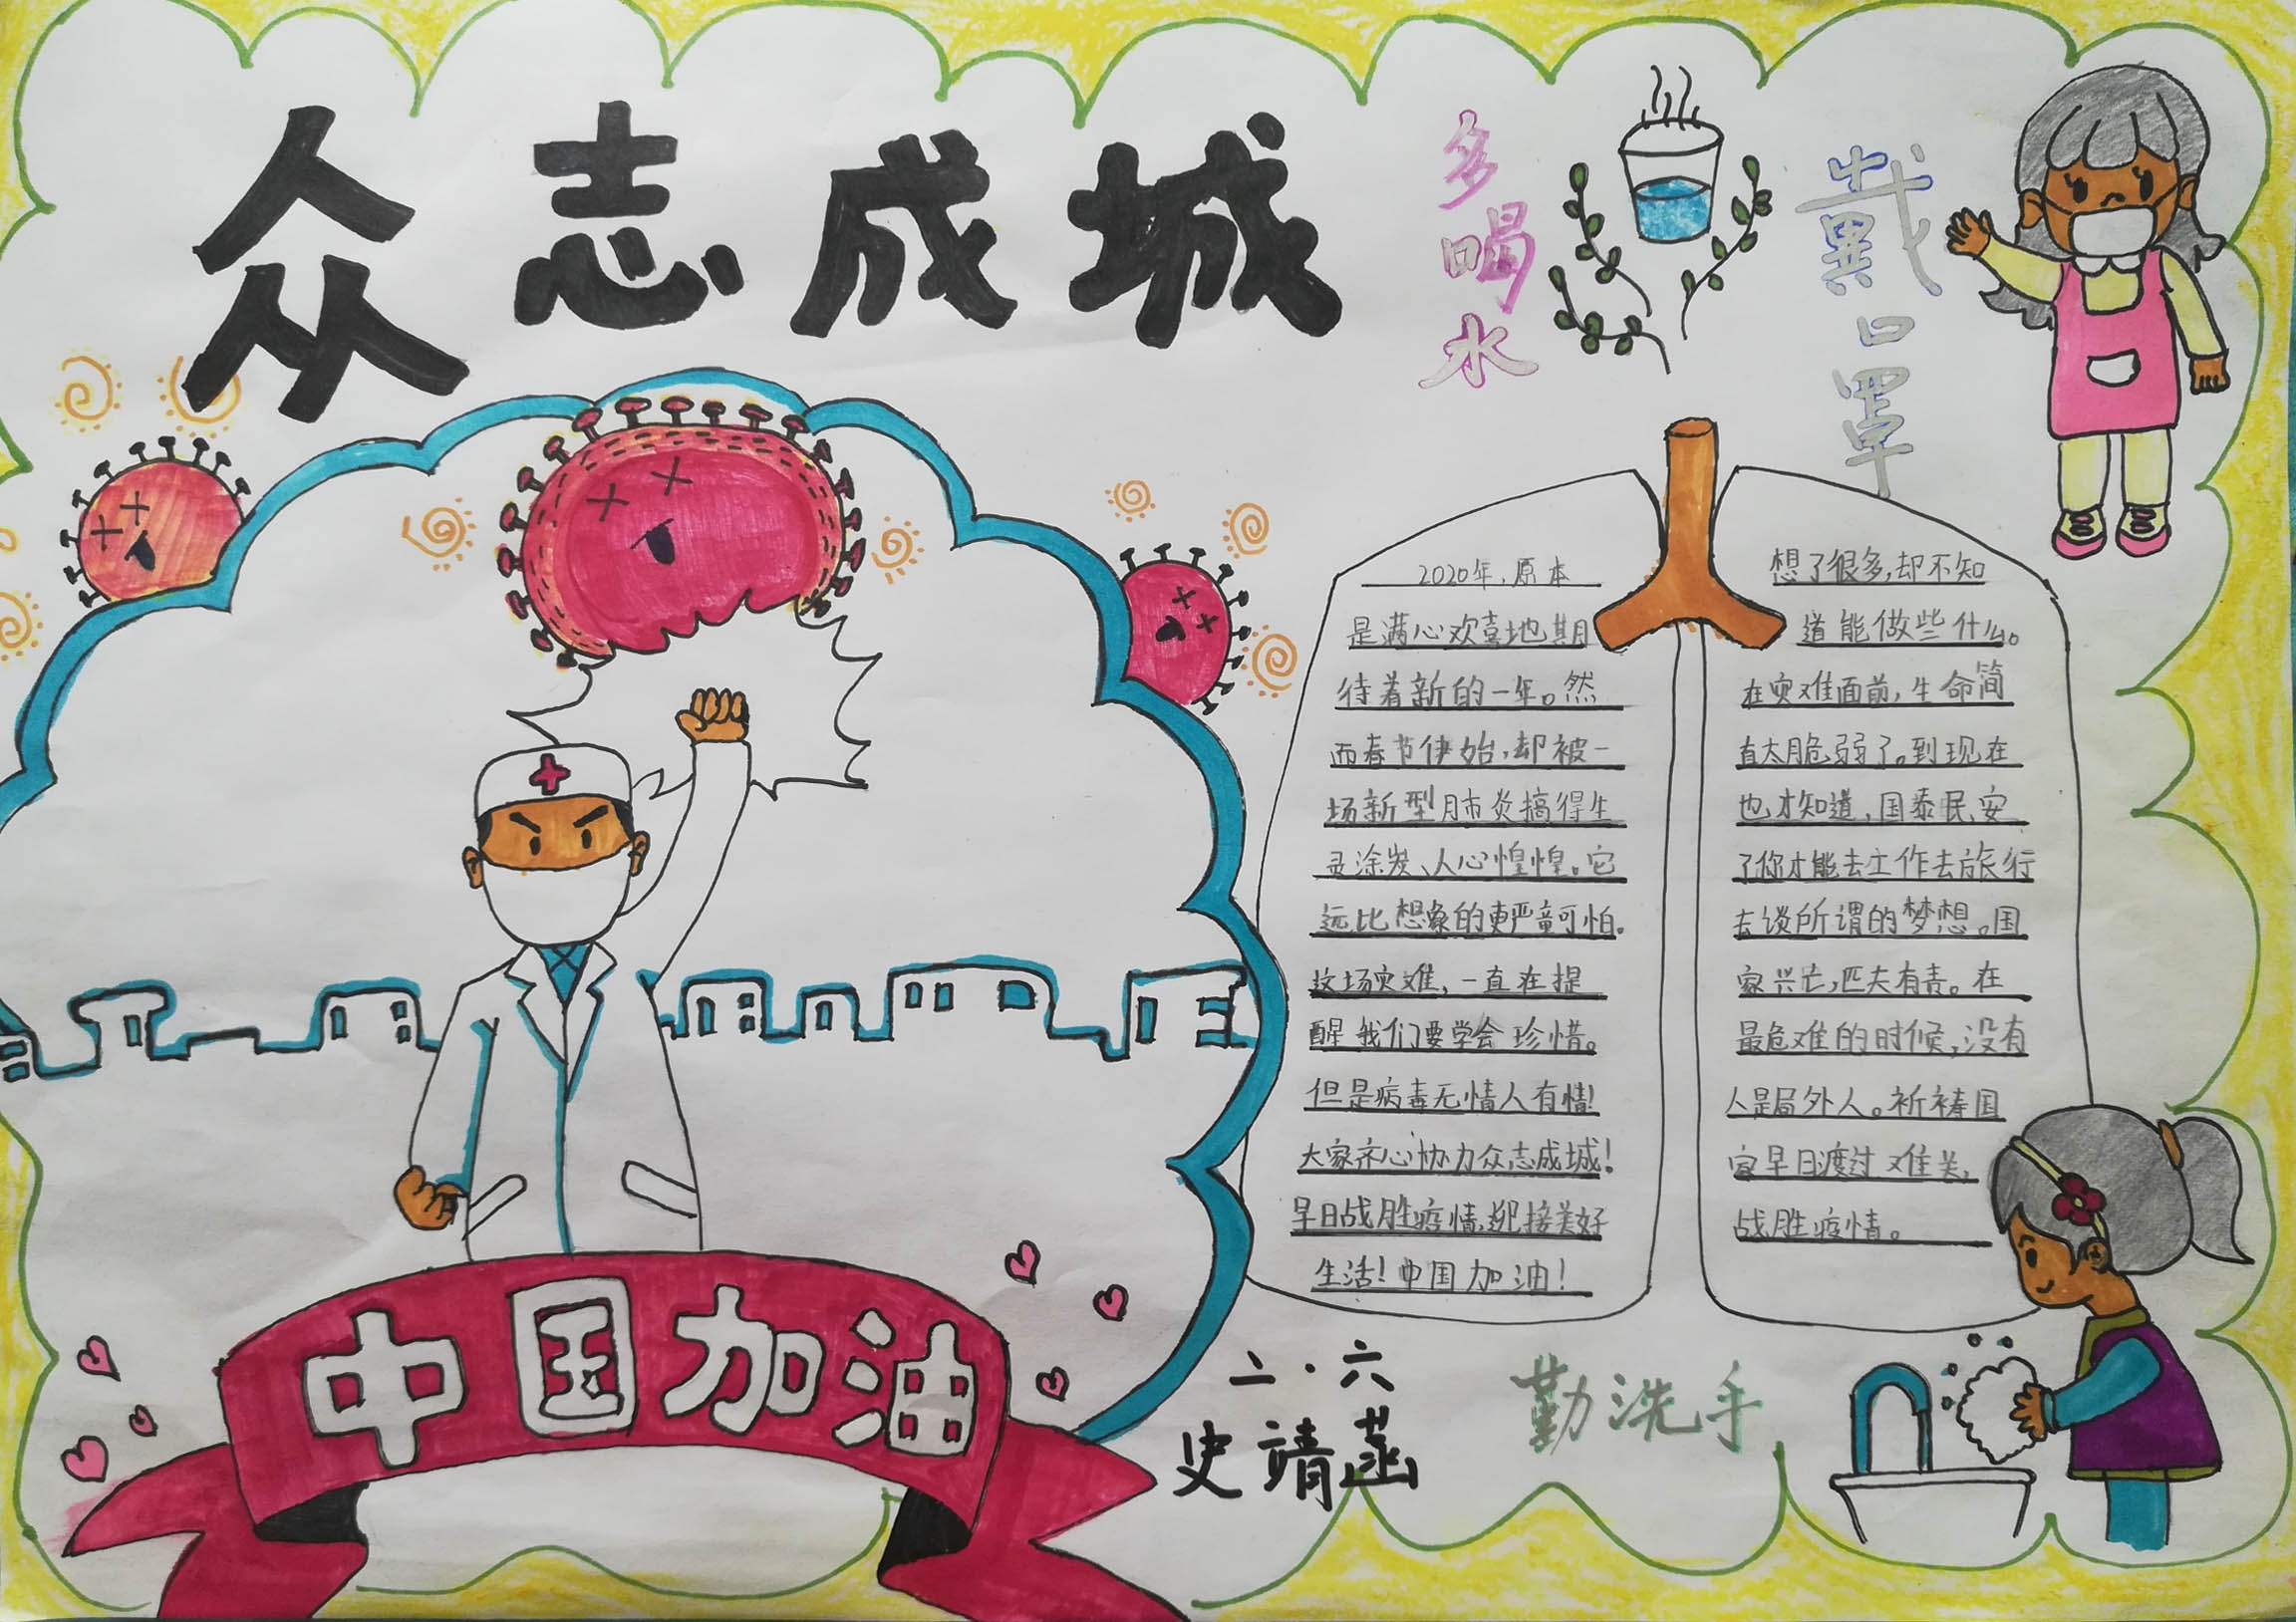 众志成城
多喝水
戴口罩
2020年,原本
是满心欢喜地期
待着新的一年。然
而春节伊始,却被一
场新型肺炎搞得生
灵涂炭、人心惶惶。它
远比想象的更严重可怕。
这场灾难,一直在提
醒我们要学会珍惜。
但是病毒无情人有情!
大家齐心协力众志成城!
早日战胜疫情,迎接美好
生活!中国加油!
想了很多,却不知
道能做些什么。
在灾难面前,生命简
直太脆弱了。到现在
也才知道,国泰民安
了你才能去工作去旅行
去谈所谓的梦想。国
家兴亡,匹夫有责。在
最危难的时候,没有
人是局外人。祈祷国
家早日渡过难关,
战胜疫情。
中国加油
二·六
史靖菡
勤洗手